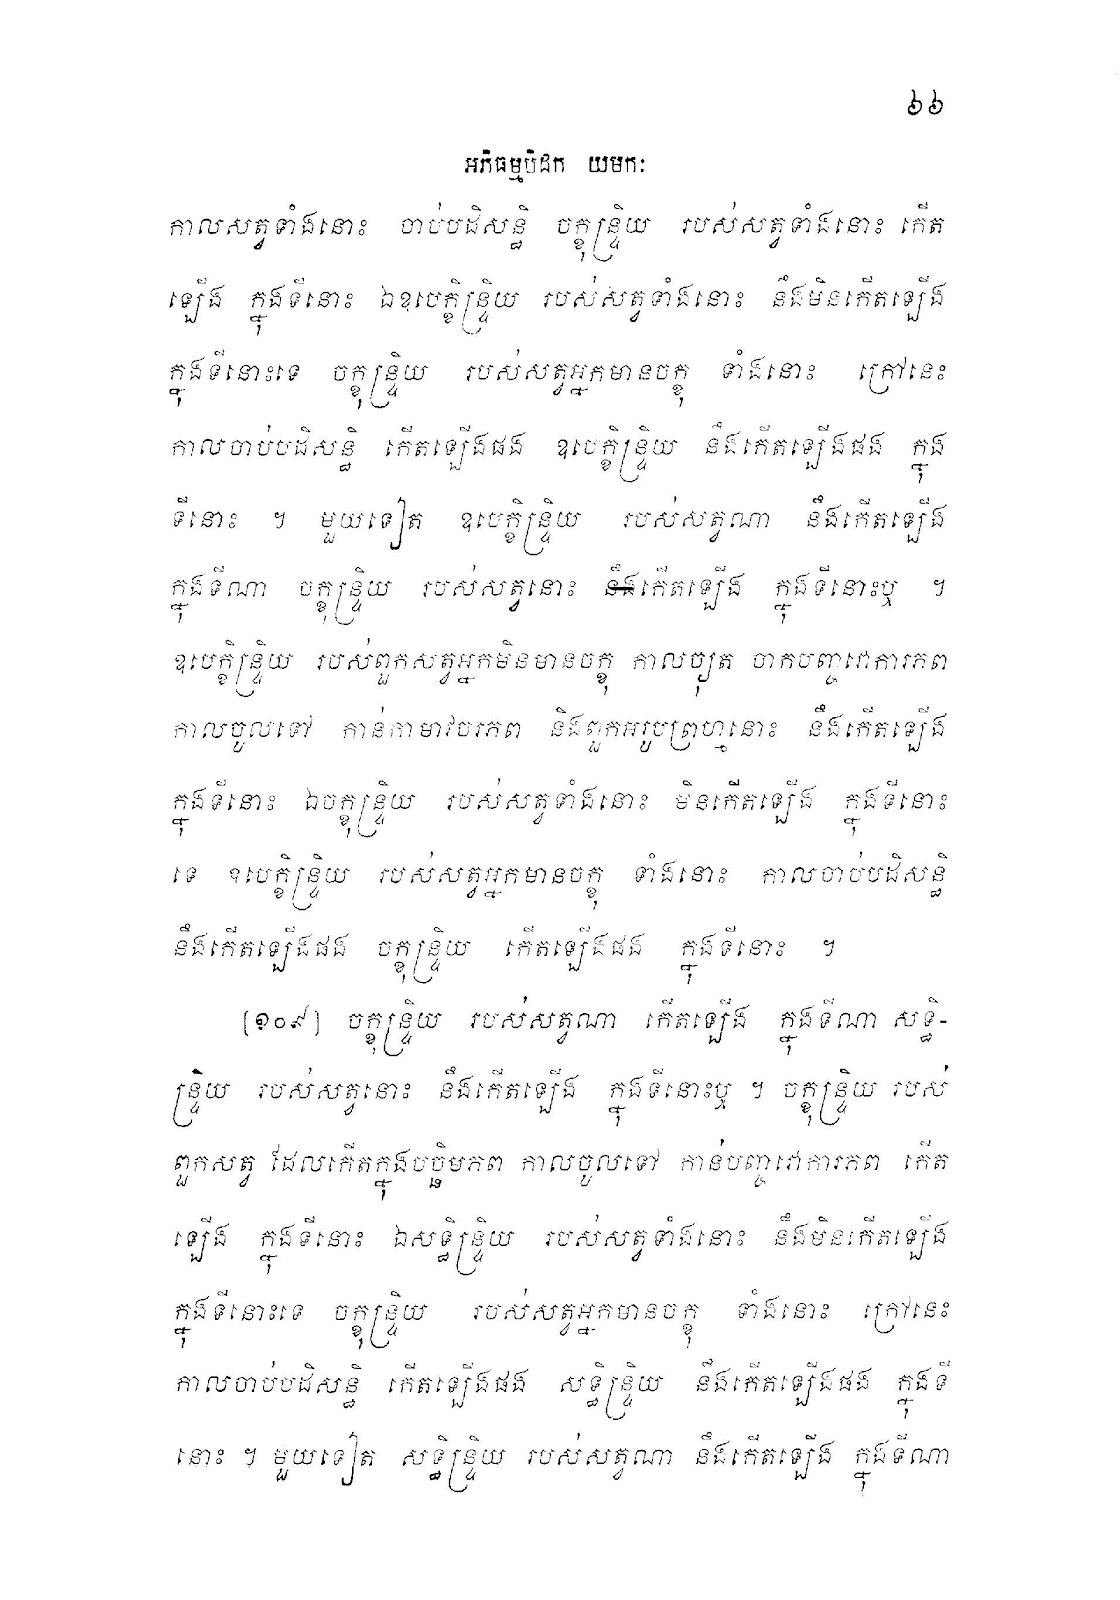 ៦៦
អភិធម្មបិដក យមកៈ
កាលសត្វទាំងនោះ ចាប់បដិសន្ធិ ចក្ខុន្ទ្រិយ របស់សត្វទាំងនោះ កើត
ឡើង ក្នុងទីនោះ ឯឧបេក្ខិន្ទ្រិយ របស់សត្វទាំងនោះ នឹងមិនកើតឡើង
ក្នុងទីនោះទេ ចក្ខុន្ទ្រិយ របស់សត្វអ្នកមានចក្ខុ ទាំងនោះ ក្រៅនេះ
កាលចាប់បដិសន្ធិ កើតឡើងផង ឧបេក្ខិន្ទ្រិយ នឹងកើតឡើងផង ក្នុង
ទីនោះ ។ មួយទៀត ឧបេក្ខិន្ទ្រិយ របស់សត្វណា នឹងកើតឡើង
ក្នុងទីណា ចក្ខុន្ទ្រិយ របស់សត្វនោះ នឹងកើតឡើង ក្នុងទីនោះឬ ។
ឧបេក្ខិន្ទ្រិយ របស់ពួកសត្វអ្នកមិនមានចក្ខុ កាលច្យុត ចាកបញ្ចវោការភព
កាលចូលទៅ កាន់កាមាវចរភព និងពួកអរូបព្រហ្មនោះ នឹងកើតឡើង
ក្នុងទីនោះ ឯចក្ខុន្ទ្រិយ របស់សត្វទាំងនោះ មិនកើតឡើង ក្នុងទីនោះ
ទេ ឧបេក្ខិន្ទ្រិយ របស់សត្វអ្នកមានចក្ខុ ទាំងនោះ កាលចាប់បដិសន្ធិ
នឹងកើតឡើងផង ចក្ខុន្ទ្រិយ កើតឡើងផង ក្នុងទីនោះ ។
[១០៩] ចក្ខុន្ទ្រិយ របស់សត្វណា កើតឡើង ក្នុងទីណា សទ្ធិ-
ន្ទ្រិយ របស់សត្វនោះ នឹងកើតឡើង ក្នុងទីនោះឬ ។ ចក្ខុន្ទ្រិយ របស់
ពួកសត្វ ដែលកើតក្នុងបច្ឆិមភព កាលចូលទៅ កាន់បញ្ចវោការភព កើត
ឡើង ក្នុងទីនោះ ឯសទ្ធិន្ទ្រិយ របស់សត្វទាំងនោះ នឹងមិនកើតឡើង
ក្នុងទីនោះទេ ចក្ខុន្ទ្រិយ របស់សត្វអ្នកមានចក្ខុ ទាំងនោះ ក្រៅនេះ
កាលចាប់បដិសន្ធិ កើតឡើងផង សទ្ធិន្ទ្រិយ នឹងកើតឡើងផង ក្នុងទី
នោះ ។ មួយទៀត សទ្ធិន្ទ្រិយ របស់សត្វណា នឹងកើតឡើង ក្នុងទីណា